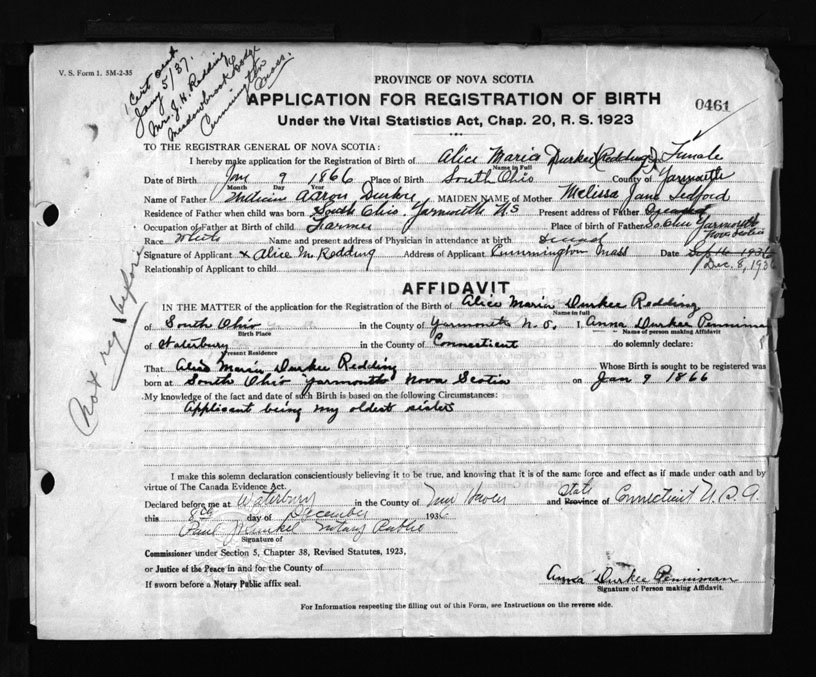 V. S. Form 1. 5M-2-35
1 Cert sent
Jany 5/37.
Mrs. J. H. Redding
Meadowbrook Lodge
Cummington
Mass.
PROVINCE OF NOVA SCOTIA
APPLICATION FOR REGISTRATION OF BIRTH
0461
Under the Vital Statistics Act, Chap. 20, R. S. 1923
TO THE REGISTRAR GENERAL OF NOVA SCOTIA:
I hereby make application for the Registration of Birth of Alice Maria Durkee (Redding) Sex Female
Name in Full
Date of Birth Jan 9 1866 Place of Birth South Ohio County of Yarmouth
Month Day Year
Name of Father William Aaron Durkee MAIDEN NAME of Mother Melissa Jane Tedford
Residence of Father when child was born South Ohio. Yarmouth N S Present address of Father Deceased
Occupation of Father at Birth of child Farmer Place of birth of Father So. Ohio Yarmouth
Nova Scotia
Race White Name and present address of Physician in attendance at birth
Signature of Applicant x Alice M. Redding Address of Applicant Cummington Mass Date Sep 16 1936
Dec. 8, 1936
Relationship of Applicant to child
AFFIDAVIT
IN THE MATTER of the application for the Registration of the Birth of Alice Maria Durkee Redding
Name in full
of South Ohio in the County of Yarmouth N. S. I, Anna Durkee Penniman
Birth Place Name of person making Affidavit
of Waterbury in the County of Connecticut do solemnly declare:
Present Residence
That Alice Maria Durkee Redding Whose Birth is sought to be registered was
born at South Ohio Yarmouth Nova Scotia on Jan 9 1866
My knowledge of the fact and date of such Birth is based on the following Circumstances:
Applicant being my oldest sister
Not reg before
I make this solemn declaration conscientiously believing it to be true, and knowing that it is of the same force and effect as if made under oath and by
virtue of The Canada Evidence Act.
Declared before me at Waterbury in the County of New Haven State and Province of Connecticut U. S. A.
this 8th day of December 1936
Paul Notary Public
Signature of
Commissioner under Section 5, Chapter 38, Revised Statutes, 1923,
or Justice of the Peace in and for the County of
If sworn before a Notary Public affix seal.
Anna Durkee Penniman
Signature of Person making Affidavit.
For Information respecting the filling out of this Form, see Instructions on the reverse side.